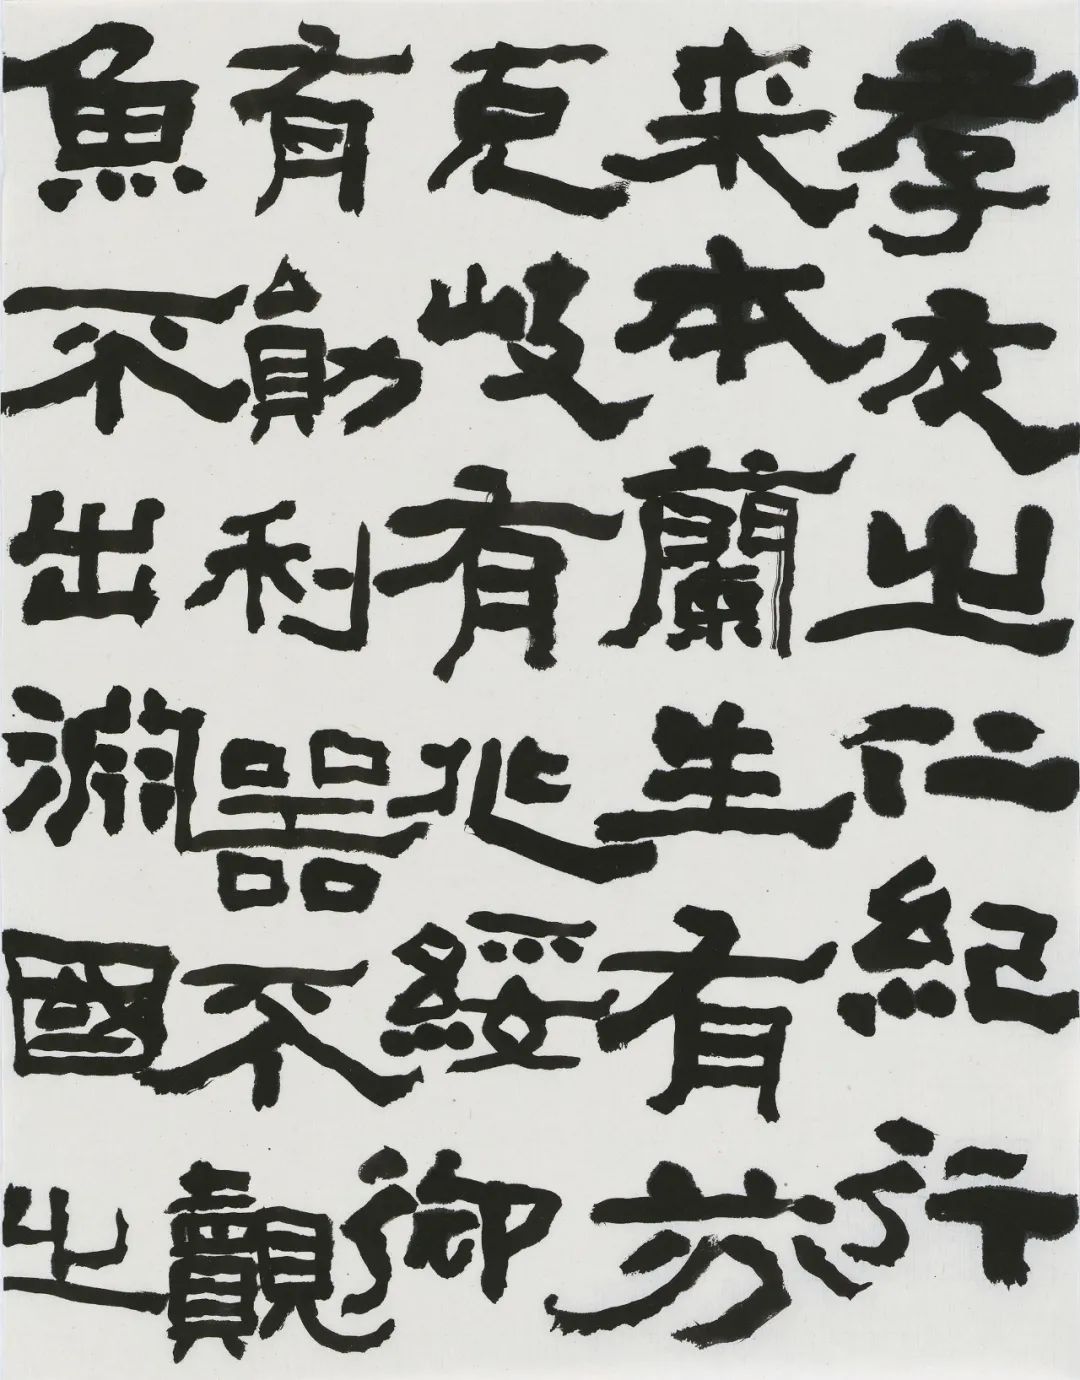 孝友之仁紀行
来本蘭生有芬
克岐有兆綏御
有勛利器不覿
魚不出淵國之